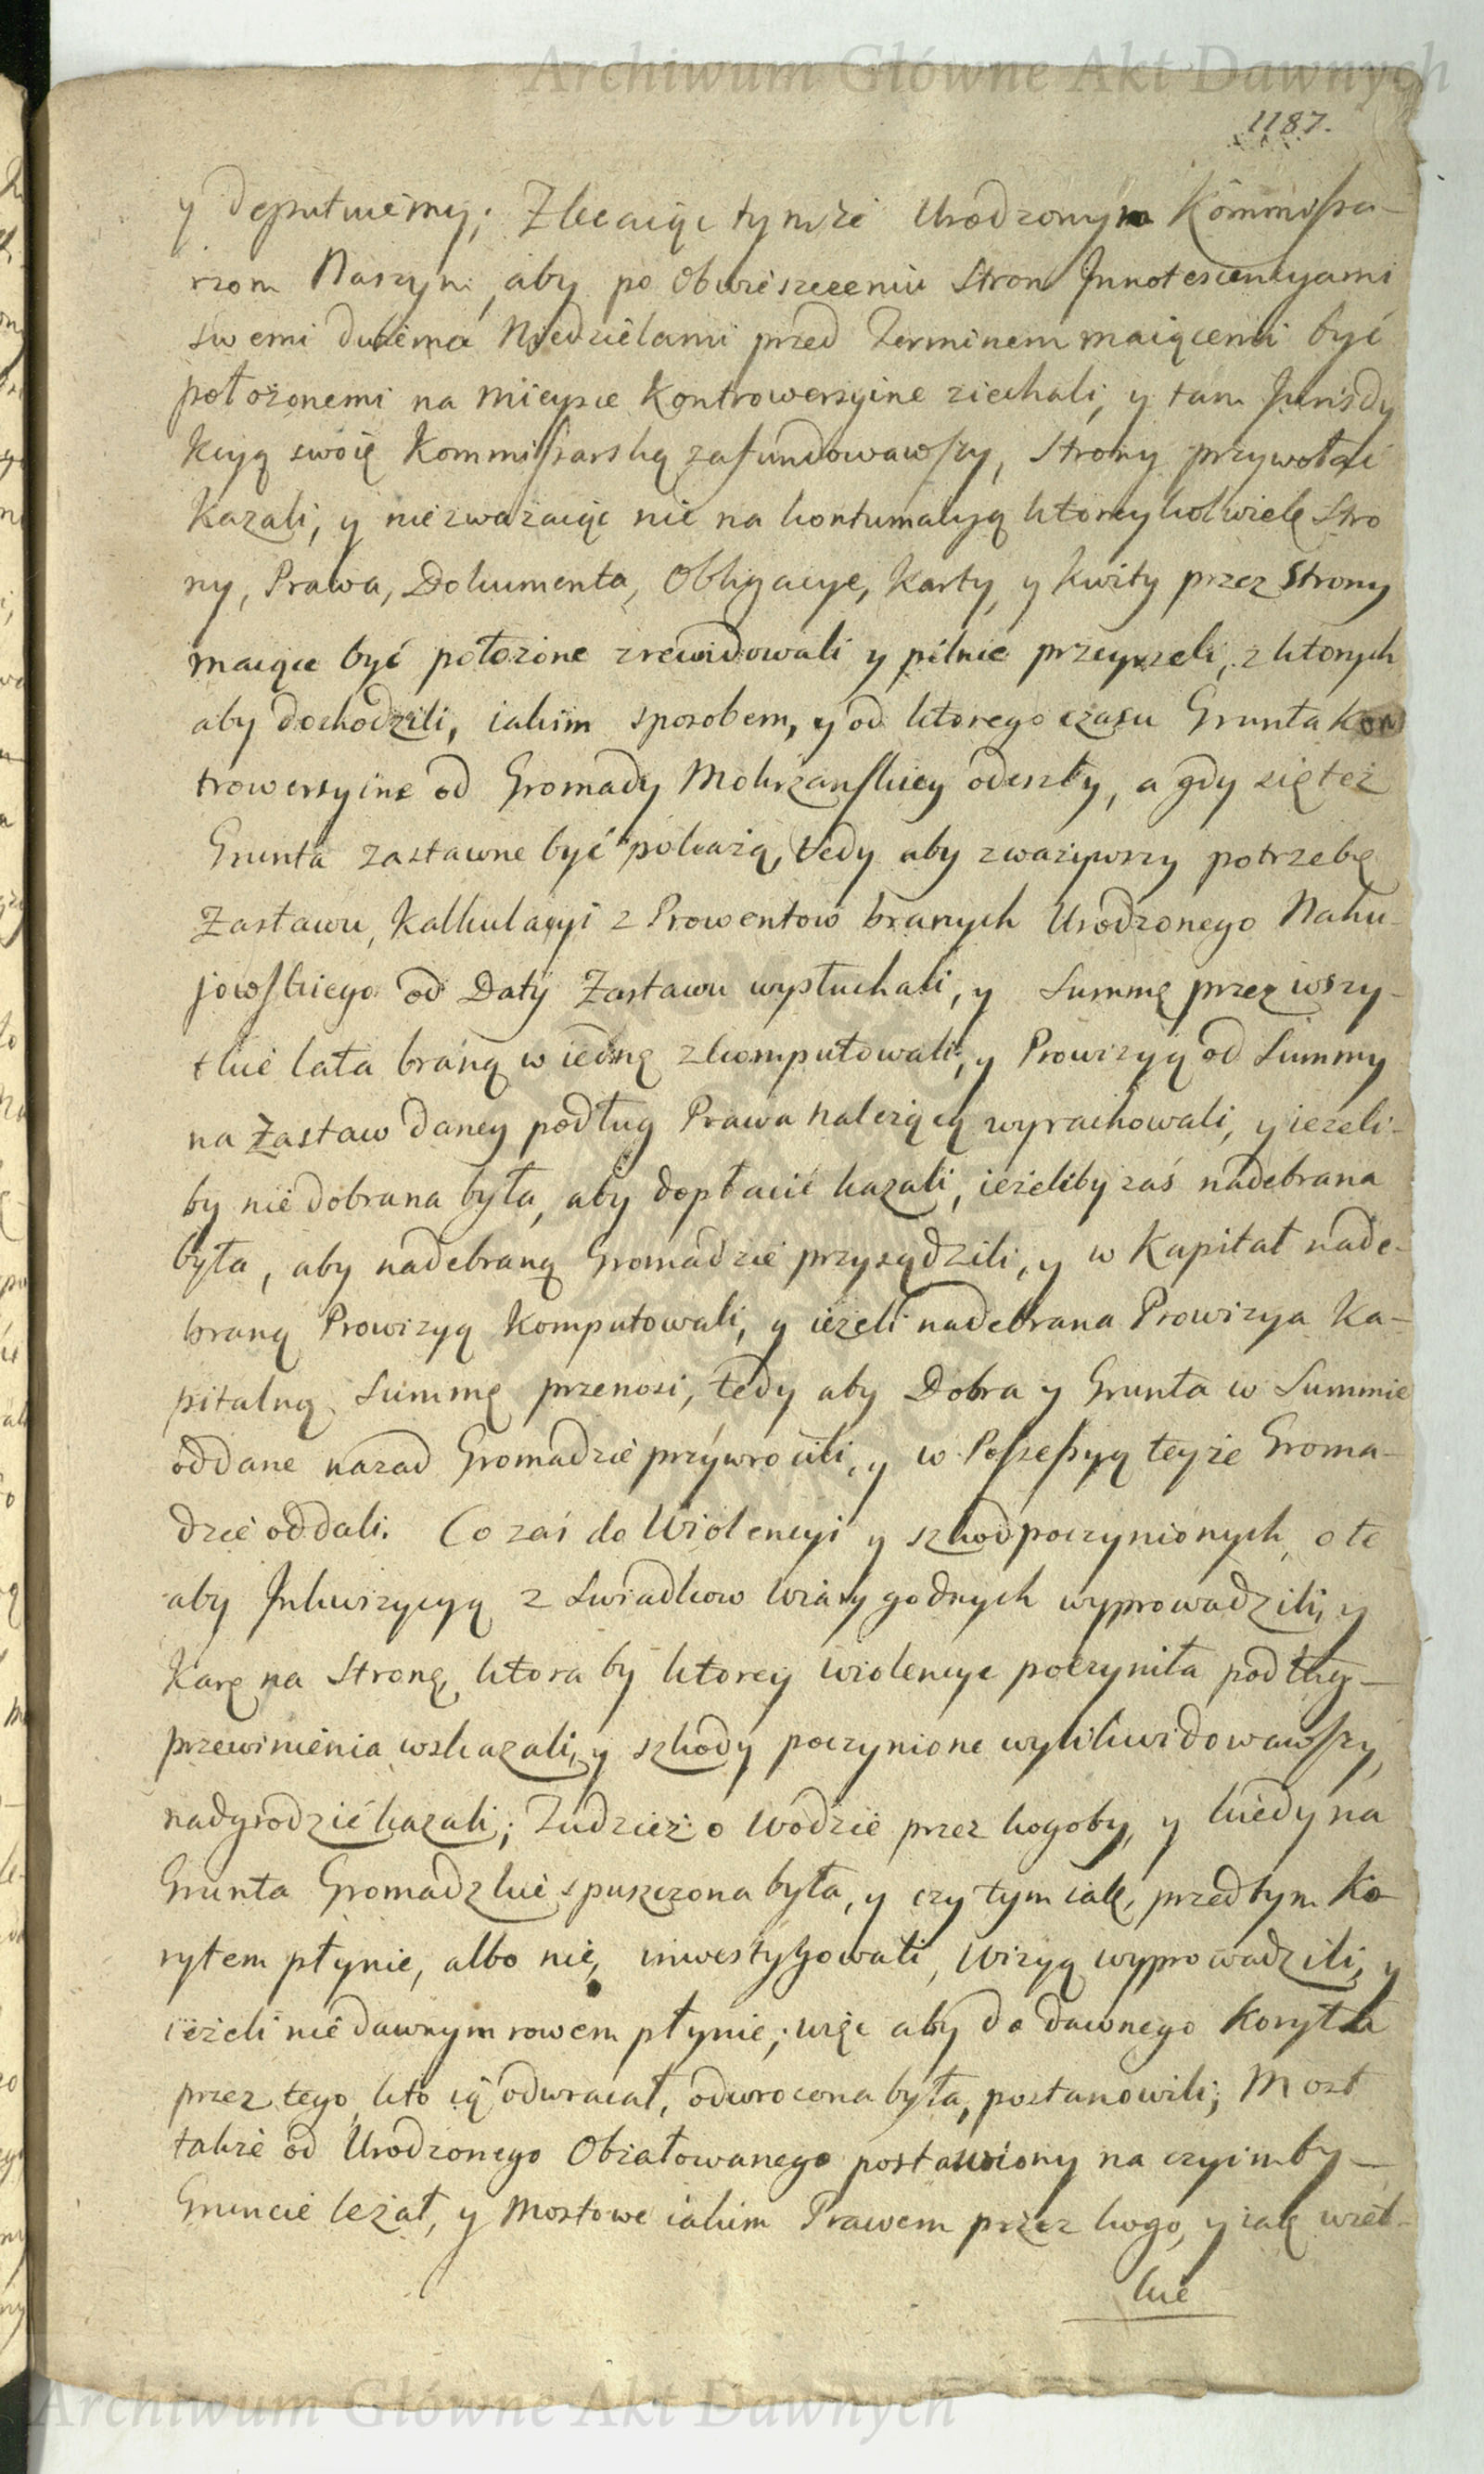 Archiwum Główne Akt Dawnych
1187.
y deputuiemy; Zlecaiąc tymże Urodzonym Kommissa-
rzom Naszym, aby po Obwieszczeniu Stron Innotescencyami
swemi dwiema Niedzielami przed Terminem maiącemi być
położonemi na mieysce Kontrowersyine ziechali, y tam Jurisdy
kcyą swoię Kommissarską zafundowawszy, Strony przywołać
kazali, y niezważaiąc nic na kontumacyą ktoreykolwiek Stro
ny, Prawa, Dokumenta, Obligacye, Karty, y Kwity przez Strony
maiące być położone zrewidowali y pilnie przeyrzeli, z ktorych
aby dochodzili, iakim sposobem, y od ktorego czasu Grunta Kon
trowersyine od Gromady Mokrzanskiey odeszły, a gdy się też
Grunta zastawne być pokażą, tedy aby zważywszy potrzebę
Zastawu, Kalkulacyi z Prowentow branych Urodzonego Nahu-
jowskiego od Daty Zastawu wysłuchali, y Summę przez wszy-
tkie lata braną w iednę zkomputowali, y Prowizyą od Summy
na Zastaw daney podług Prawa należącą wyrachowali, y ieżeli-
by niedobrana była, aby dopłacić kazali, ieżeliby zaś nadebrana
była, aby nadebraną Gromadzie przysądzili, y w Kapitał nade-
braną Prowizyą Komputowali, y ieżeli nadebrana Prowizya Ka-
pitalną Summę przenosi, tedy aby Dobra y Grunta w Summie
oddane nazad Gromadzie przywrocili, y w Possessyą teyże Groma-
dzie oddali. Co zaś do Wiolencyi y szkod poczynionych, o te
aby Inkwizycyą z Swiadkow wiary godnych wyprowadzili, y
Karę na Stronę, ktora by ktorey wiolencye poczyniła podług
przewinienia wskazali, y szkody poczynione wylikwidowawszy,
nadgrodzić kazali; Tudzież o Wodzie przez kogoby, y kiedy na
Grunta Gromadzkie spuszczona była, y czy tym iak przedtym Ko
rytem płynie, albo nie, inwestygowali, Wizyą wyprowadzili, y
ieżeli nie dawnym rowem płynie; więc aby do dawnego Koryta
przez tego, kto ią odwracał, odwrocona była, postanowili; Most
także od Urodzonego Obżałowanego postawiony na czyimby
Gruncie leżał, y Mostowe iakim Prawem przez kogo, y iak wiel-
kie
Archiwum Główne Akt Dawnych